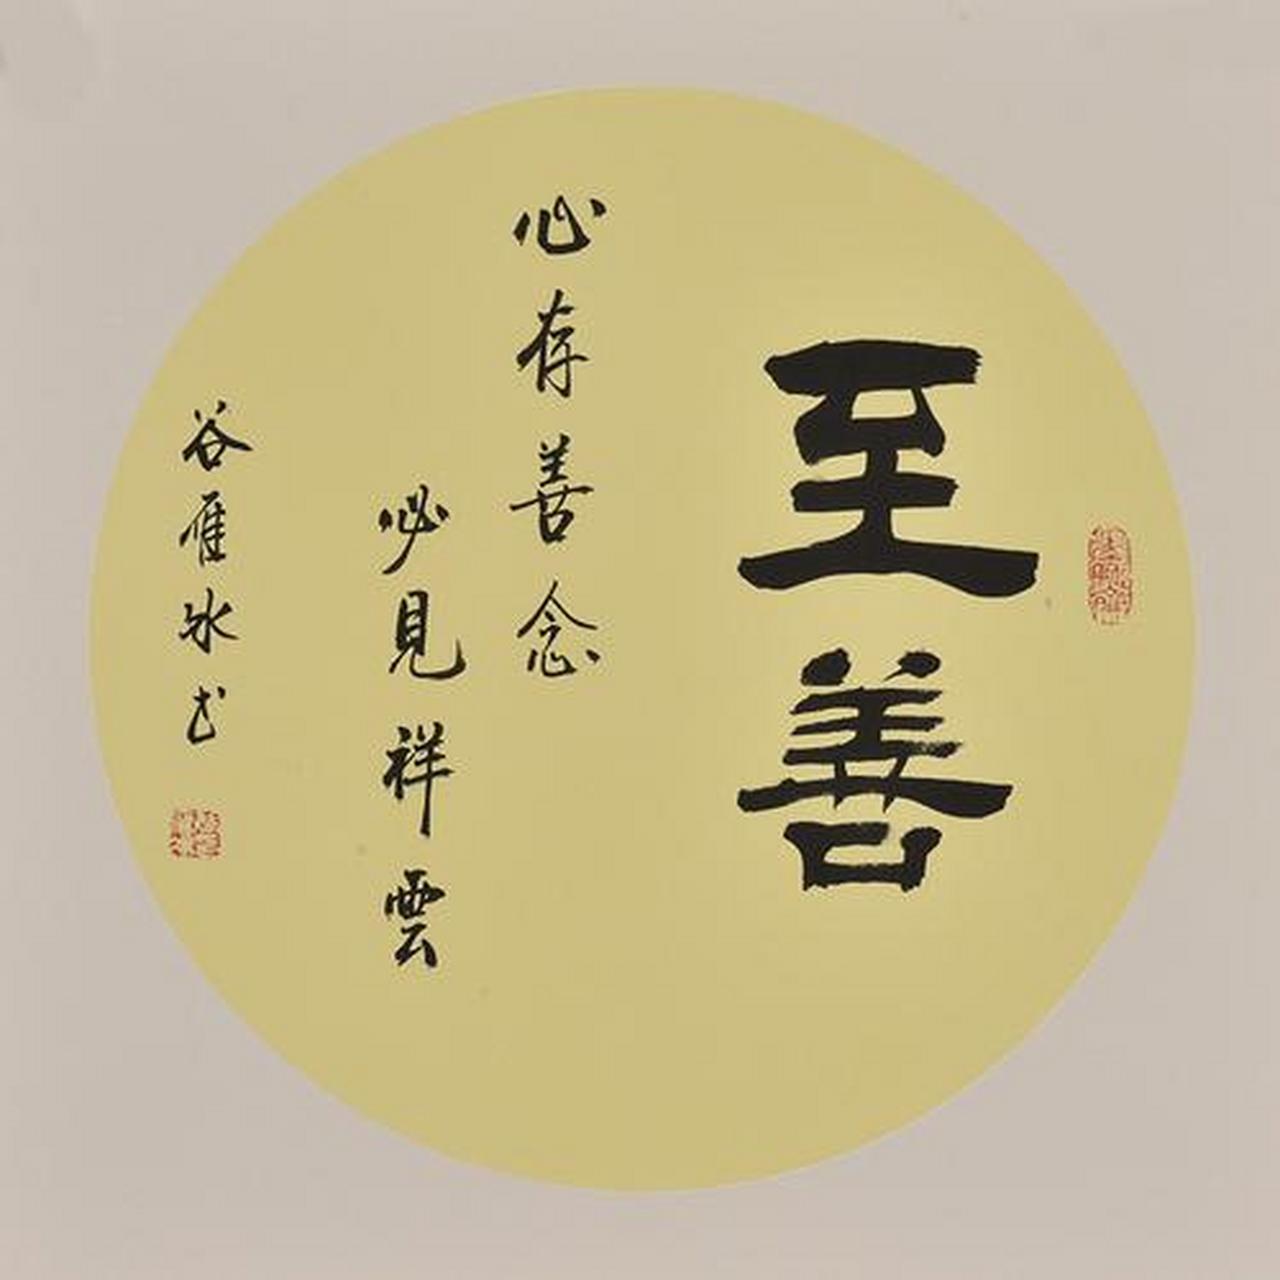 至善
心存善念
必見祥雲
谷雁冰书